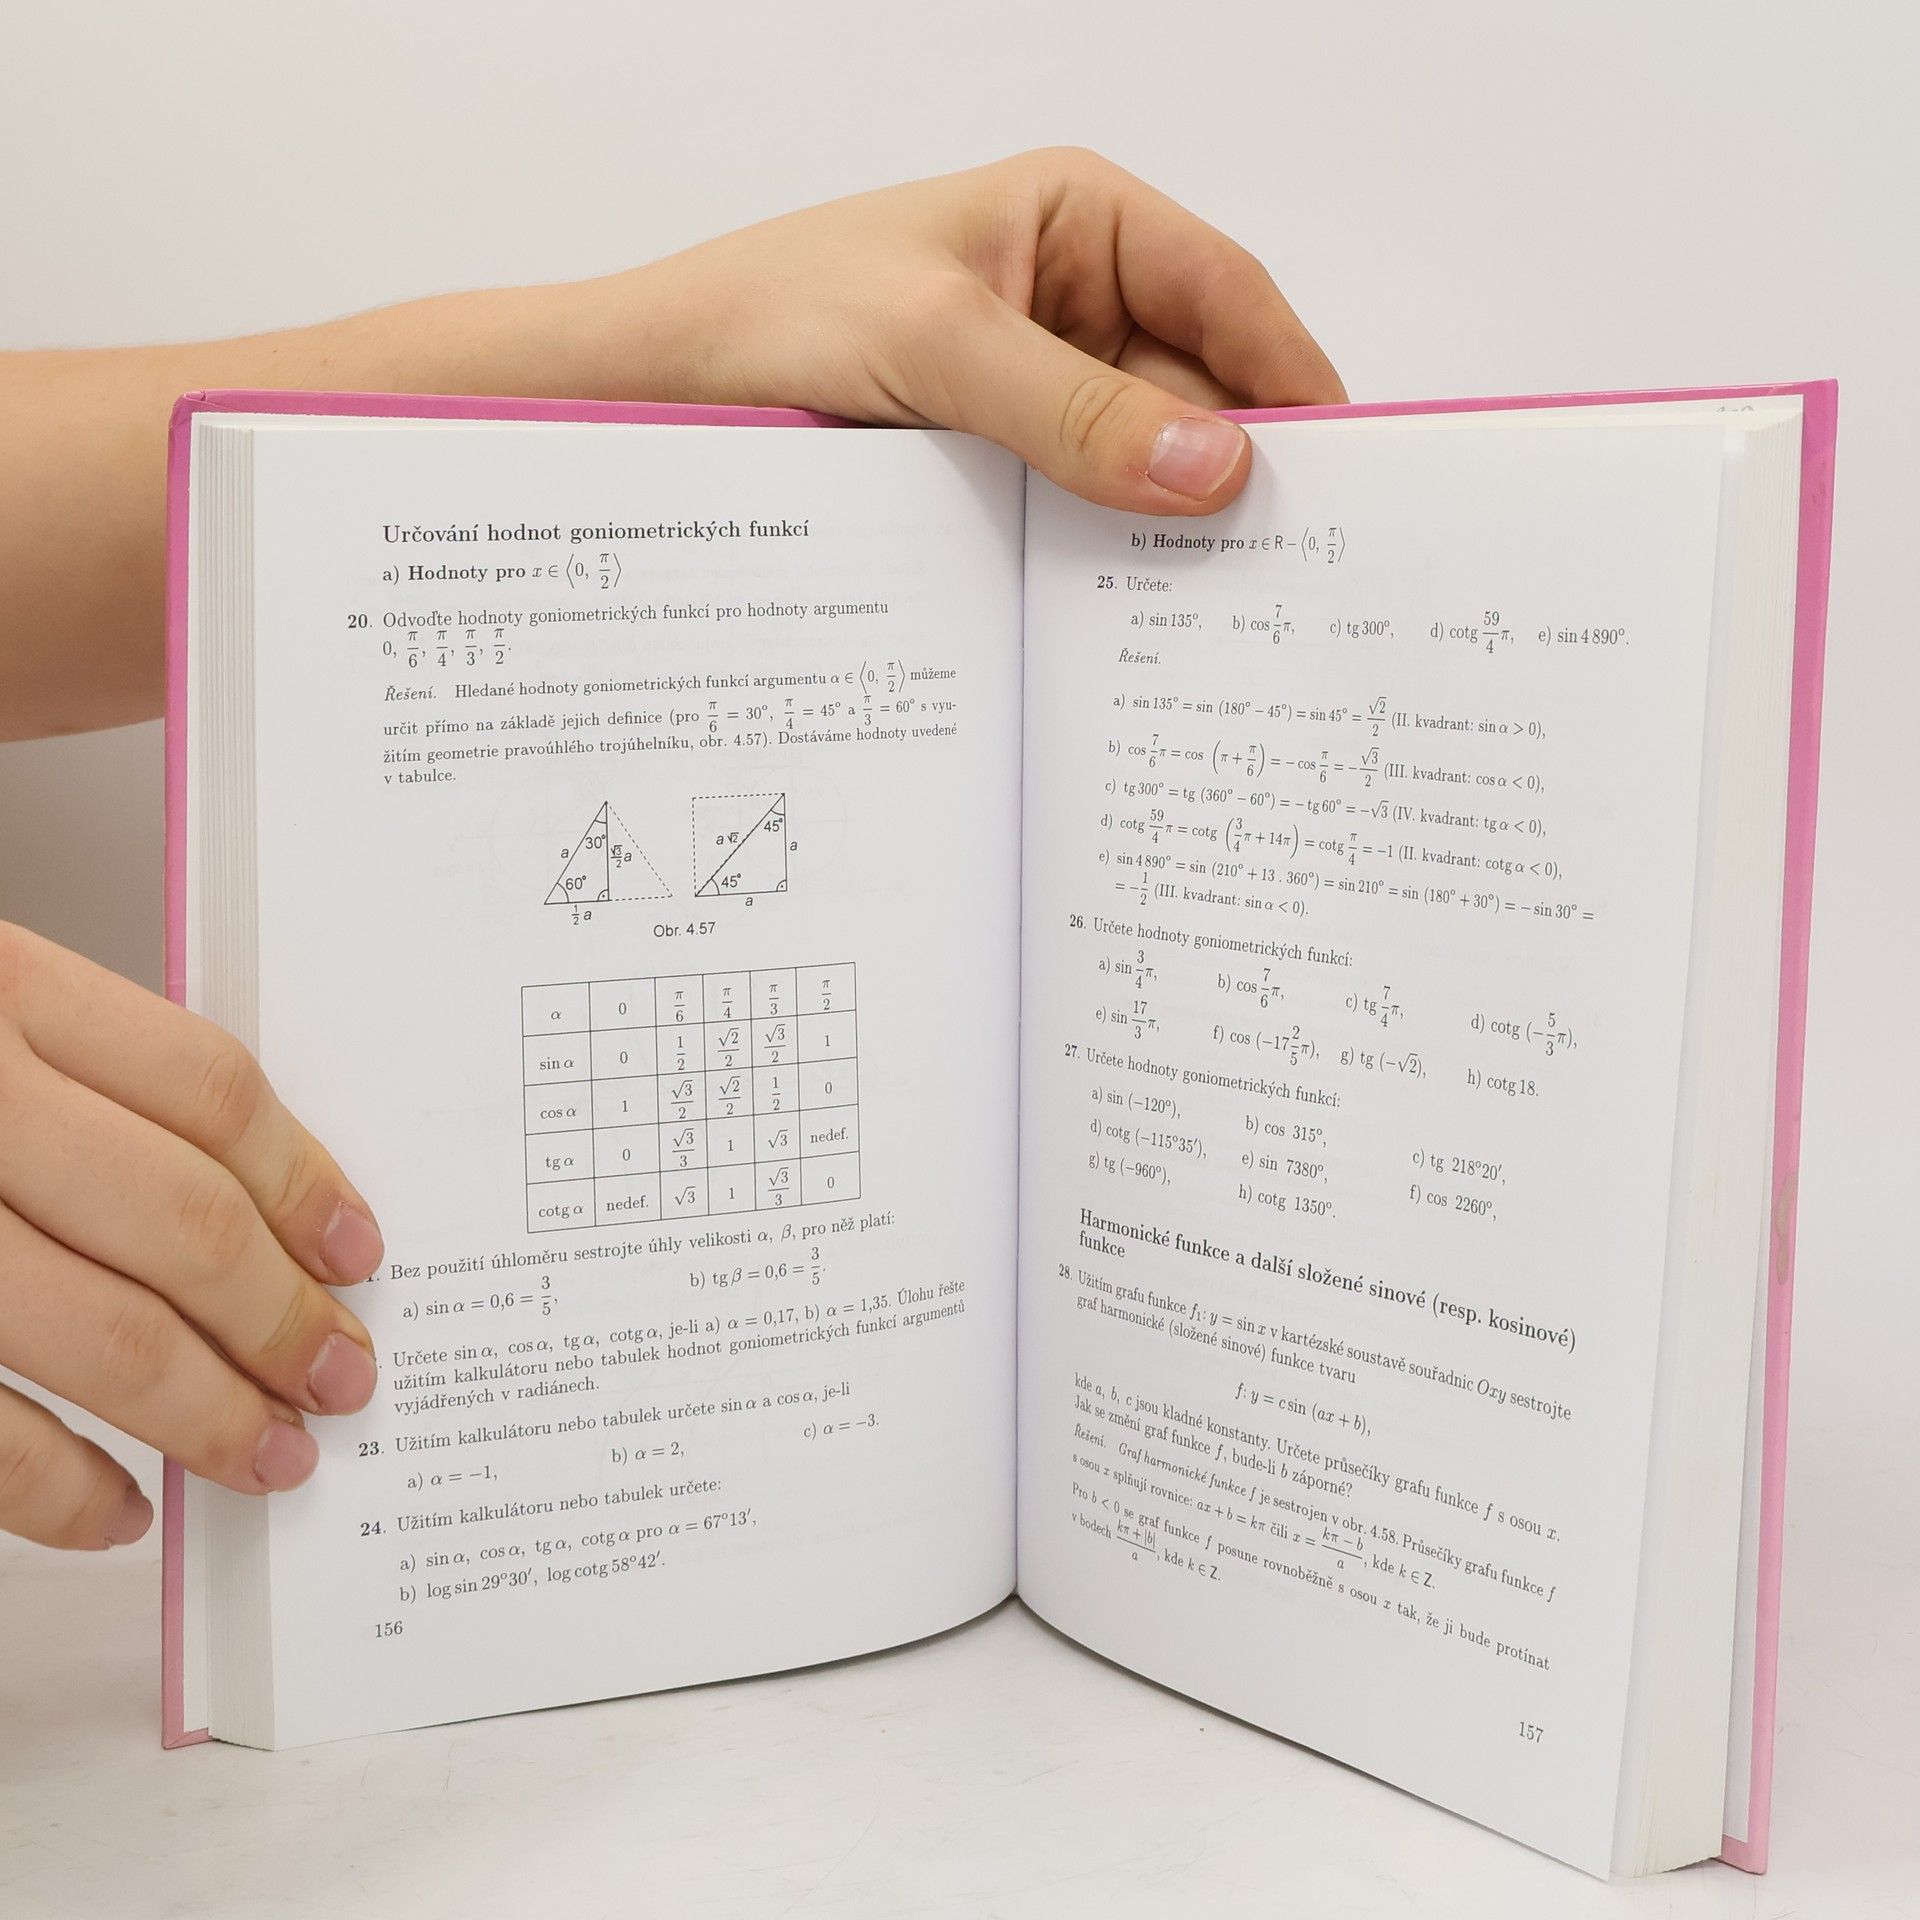 Určování hodnot goniometrických funkcí
a) Hodnoty pro x ∈ ⟨0, π/2⟩
20. Odvoďte hodnoty goniometrických funkcí pro hodnoty argumentu
0, π/6, π/4, π/3, π/2.
Řešení. Hledané hodnoty goniometrických funkcí argumentu α ∈ ⟨0, π/2⟩ můžeme
určit přímo na základě jejich definice (pro π/6 = 30°, π/4 = 45° a π/3 = 60° s vyu-
žitím geometrie pravoúhlého trojúhelníku, obr. 4.57). Dostáváme hodnoty uvedené
v tabulce.
a 30° √3/2 a 60° 1/2 a
a√2 45° a 45° a
Obr. 4.57
α 0 π/6 π/4 π/3 π/2
sin α 0 1/2 √2/2 √3/2 1
cos α 1 √3/2 √2/2 1/2 0
tg α 0 √3/3 1 √3 nedef.
cotg α nedef. √3 1 √3/3 0
. Bez použití úhloměru sestrojte úhly velikosti α, β, pro něž platí:
a) sin α = 0,6 = 3/5, b) tg β = 0,6 = 3/5.
. Určete sin α, cos α, tg α, cotg α, je-li a) α = 0,17, b) α = 1,35. Úlohu řešte
užitím kalkulátoru nebo tabulek hodnot goniometrických funkcí argumentů
vyjádřených v radiánech.
23. Užitím kalkulátoru nebo tabulek určete sin α a cos α, je-li
a) α = −1, b) α = 2, c) α = −3.
24. Užitím kalkulátoru nebo tabulek určete:
a) sin α, cos α, tg α, cotg α pro α = 67°13′,
b) log sin 29°30′, log cotg 58°42′.
156
b) Hodnoty pro x ∈ R − ⟨0, π/2⟩
25. Určete:
a) sin 135°, b) cos 7/6 π, c) tg 300°, d) cotg 59/4 π, e) sin 4 890°.
Řešení.
a) sin 135° = sin (180° − 45°) = sin 45° = √2/2 (II. kvadrant: sin α > 0),
b) cos 7/6 π = cos (π + π/6) = − cos π/6 = −√3/2 (III. kvadrant: cos α < 0),
c) tg 300° = tg (360° − 60°) = − tg 60° = −√3 (IV. kvadrant: tg α < 0),
d) cotg 59/4 π = cotg (3/4 π + 14π) = cotg π/4 = −1 (II. kvadrant: cotg α < 0),
e) sin 4 890° = sin (210° + 13 . 360°) = sin 210° = sin (180° + 30°) = − sin 30° =
= −1/2 (III. kvadrant: sin α < 0).
26. Určete hodnoty goniometrických funkcí:
a) sin 3/4 π, b) cos 7/6 π, c) tg 7/4 π, d) cotg (−5/3 π),
e) sin 17/3 π, f) cos (−17 2/5 π), g) tg (−√2), h) cotg 18.
27. Určete hodnoty goniometrických funkcí:
a) sin (−120°), b) cos 315°, c) tg 218°20′,
d) cotg (−115°35′), e) sin 7380°, f) cos 2260°,
g) tg (−960°), h) cotg 1350°.
Harmonické funkce a další složené sinové (resp. kosinové)
funkce
28. Užitím grafu funkce f₁: y = sin x v kartézské soustavě souřadnic Oxy sestrojte
graf harmonické (složené sinové) funkce tvaru
f: y = c sin (ax + b),
kde a, b, c jsou kladné konstanty. Určete průsečíky grafu funkce f s osou x.
Jak se změní graf funkce f, bude-li b záporné?
Řešení. Graf harmonické funkce f je sestrojen v obr. 4.58. Průsečíky grafu funkce f
s osou x splňují rovnice: ax + b = kπ čili x = (kπ − b)/a, kde k ∈ Z.
Pro b < 0 se graf funkce f posune rovnoběžně s osou x tak, že ji bude protínat
v bodech (kπ + |b|)/a, kde k ∈ Z.
157